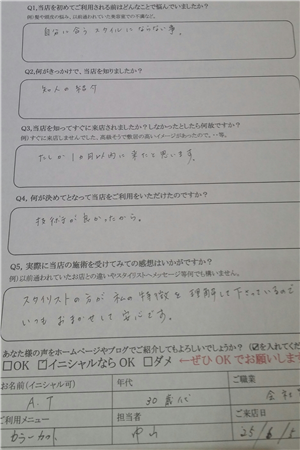 Q1,当店を初めてご利用される前はどんなことで悩んでいましたか?
自分に合うスタイルにならない事。
Q2,何がきっかけで、当店を知りましたか?
知人の紹介
Q3,当店を知ってすぐに来店されましたか?しなかったとしたら何故ですか?
たしか1ヶ月以内に来たと思います。
Q4, 何が決めてとなって当店をご利用をいただけたのですか?
技術が良かったから。
Q5, 実際に当店の施術を受けてみての感想はいかがですか?
例)以前通われていたお店との違いやスタイリストへメッセージ等何でも構いません。
スタイリストの方が私の特徴を理解して下さっているので
いつもおまかせして安心です。
あなた様の声をホームページやブログでご紹介してもよろしいでしょうか?(☑を入れてくだ
□OK □イニシャルならOK □ダメ ←ぜひOKでお願いします
お名前(イニシャル可) 年代 ご職業
A.T 30歳代 会社
ご利用メニュー 担当者 ご来店日
カラーカット 中山 25/6/5